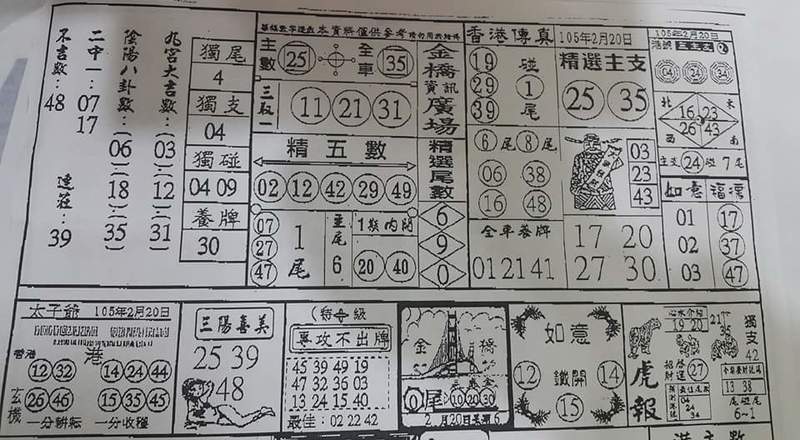 不吉數:48
二中一:07 17
連莊:39
陰陽八卦數:(06)(18)(35)
九宮大吉數:(03)(12)(31)
獨尾
4
獨支
04
獨碰
04 09
養牌
30
本資料僅供參考
主數 25 全車 35
三取一
11 21 31
精五數
02 12 42 29 49
07
27
47
1
尾
主尾
6
1期內開
20 40
金橋資訊廣場
精選尾數
6
9
0
香港傳真
105年2月20日
19
29
39
碰
1
尾
6尾 8尾
06 38
16 48
全車養牌
01 21 41
精選主支
25 35
03
23
43
17 20
27 30
105年2月20日
04 24 34
北 東
16 23
26 43
西 南
主支 24 碰 7尾
如意
01 17
02 37
03 47
太子爺 105年2月20日
香港
港
12 32 14 24 44
玄機
26 46 15 35 45
一分耕耘 一分收穫
三陽喜美
25 39
48
專攻不出牌
45 39 49 19
47 32 36 03
13 24 15 40
最佳:02 22 42
金橋
0尾
10 20 30
如意
12 鐵開 14
15
虎報
19 20
27
獨支
42
13 38
6-1